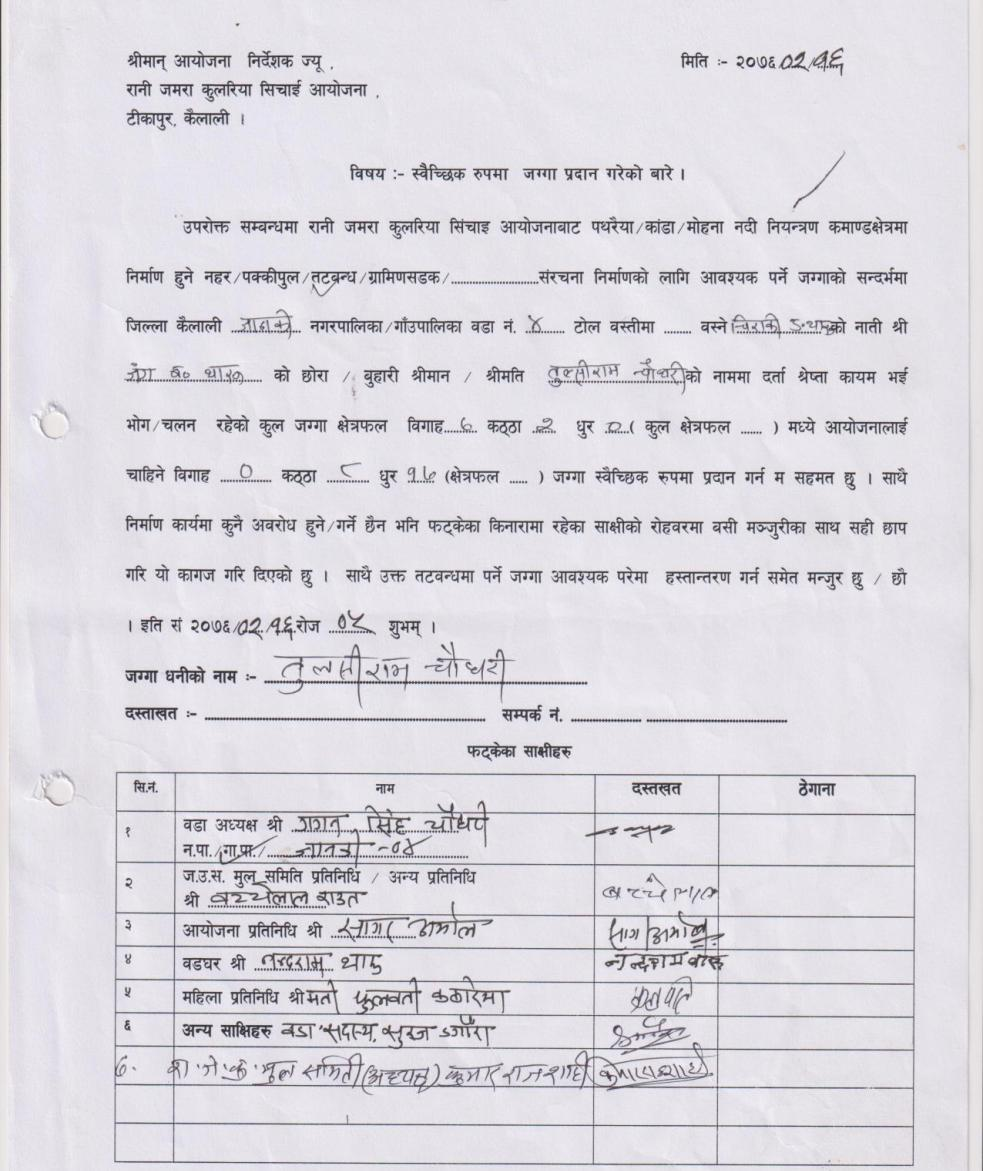 श्रीमान् आयोजना निर्देशक ज्यू ,
मिति :- २०७६/०२/१६
रानी जमरा कुलरिया सिचाई आयोजना ,
टीकापुर, कैलाली ।
विषय :- स्वैच्छिक रुपमा जग्गा प्रदान गरेको बारे ।
उपरोक्त सम्बन्धमा रानी जमरा कुलरिया सिंचाइ आयोजनाबाट पथरैया/कांडा/मोहना नदी नियन्त्रण कमाण्डक्षेत्रमा
निर्माण हुने नहर/पक्कीपुल/तटबन्ध/ग्रामिणसडक/.....................संरचना निर्माणको लागि आवश्यक पर्ने जग्गाको सन्दर्भमा
जिल्ला कैलाली नगरपालिका/गाँउपालिका वडा नं. ४ टोल वस्तीमा ........ वस्ने को नाती श्री
जंग ब० थारु को छोरा / बुहारी श्रीमान / श्रीमति तुल्सीराम चौधरी को नाममा दर्ता श्रेष्ता कायम भई
भोग/चलन रहेको कुल जग्गा क्षेत्रफल विगाह कठ्ठा २ धुर ( कुल क्षेत्रफल ...... ) मध्ये आयोजनालाई
चाहिने विगाह ० कठ्ठा ८ धुर १७ (क्षेत्रफल ..... ) जग्गा स्वैच्छिक रुपमा प्रदान गर्न म सहमत छु । साथै
निर्माण कार्यमा कुनै अवरोध हुने/गर्ने छैन भनि फट्केका किनारामा रहेका साक्षीको रोहवरमा वसी मञ्जुरीका साथ सही छाप
गरि यो कागज गरि दिएको छु । साथै उक्त तटवन्धमा पर्ने जग्गा आवश्यक परेमा हस्तान्तरण गर्न समेत मन्जुर छु / छौ
। इति सं २०७६/०२/१६ रोज ०५ शुभम् ।
जग्गा धनीको नाम :- तुलसीराम चौधरी
दस्ताखत :- ........................ सम्पर्क नं. ........................
फट्केका साक्षीहरु
सि.नं. नाम दस्तखत ठेगाना
१ वडा अध्यक्ष श्री गगन सिंह चौधरी
न.पा./गा.पा./ जानकी -०४
२ ज.उ.स. मुल समिति प्रतिनिधि / अन्य प्रतिनिधि
श्री बच्चेलाल राउत
३ आयोजना प्रतिनिधि श्री सागर
४ वडघर श्री नन्दराम थारु
५ महिला प्रतिनिधि श्रीमती फुलवती
६ अन्य साक्षिहरु वडा सदस्य, सुरज डगौरा
७. रा.ज.कु. मुल समिती (अध्यक्ष) कुमार राज शाही